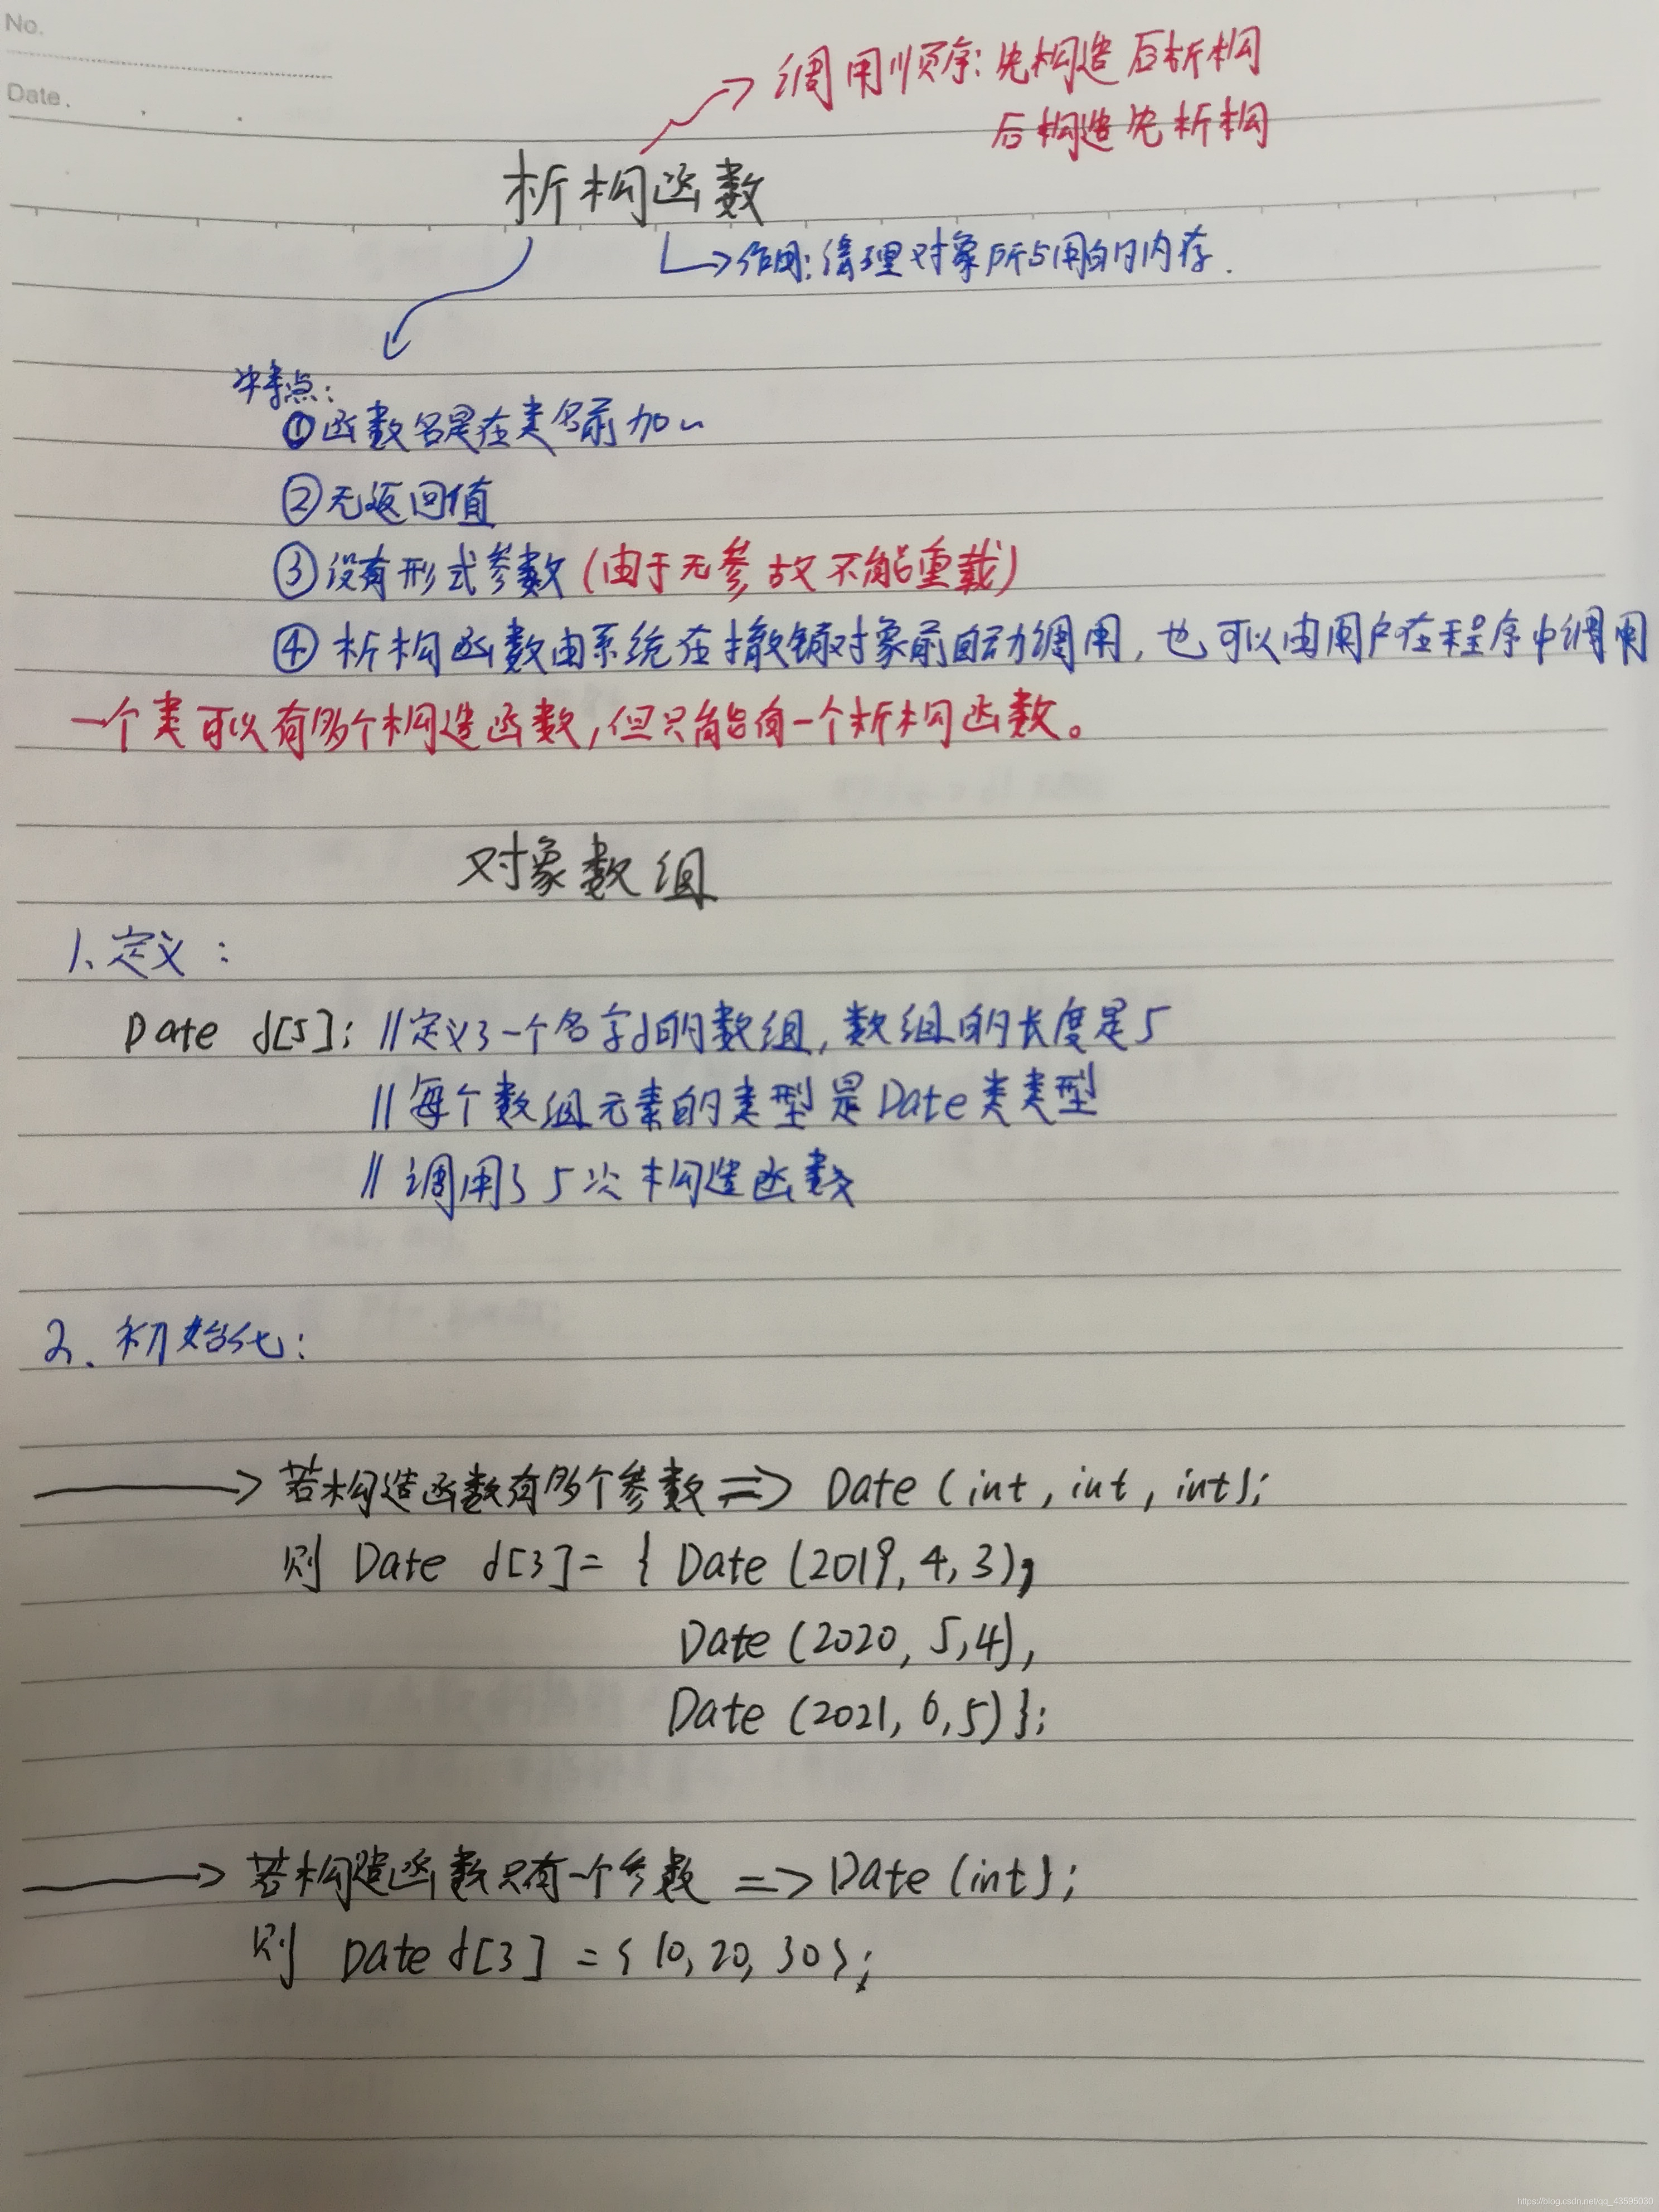 No.
Date.
调用顺序:先构造后析构
后构造先析构
析构函数
作用:清理对象所占用的内存.
特点:
①函数名是在类名前加~
②无返回值
③没有形式参数(由于无参,故不能重载)
④析构函数由系统在撤销对象前自动调用,也可以由用户在程序中调用
一个类可以有多个构造函数,但只能有一个析构函数。
对象数组
1、定义:
Date d[5]; //定义了一个名字d的数组,数组的长度是5
//每个数组元素的类型是Date类类型
//调用了5次构造函数
2、初始化:
若构造函数有多个参数 => Date (int, int, int);
则 Date d[3]= { Date (2019, 4, 3),
Date (2020, 5, 4),
Date (2021, 6, 5) };
若构造函数只有一个参数 => Date (int);
则 Date d[3] = { 10, 20, 30 };
https://blog.csdn.net/qq_43595030